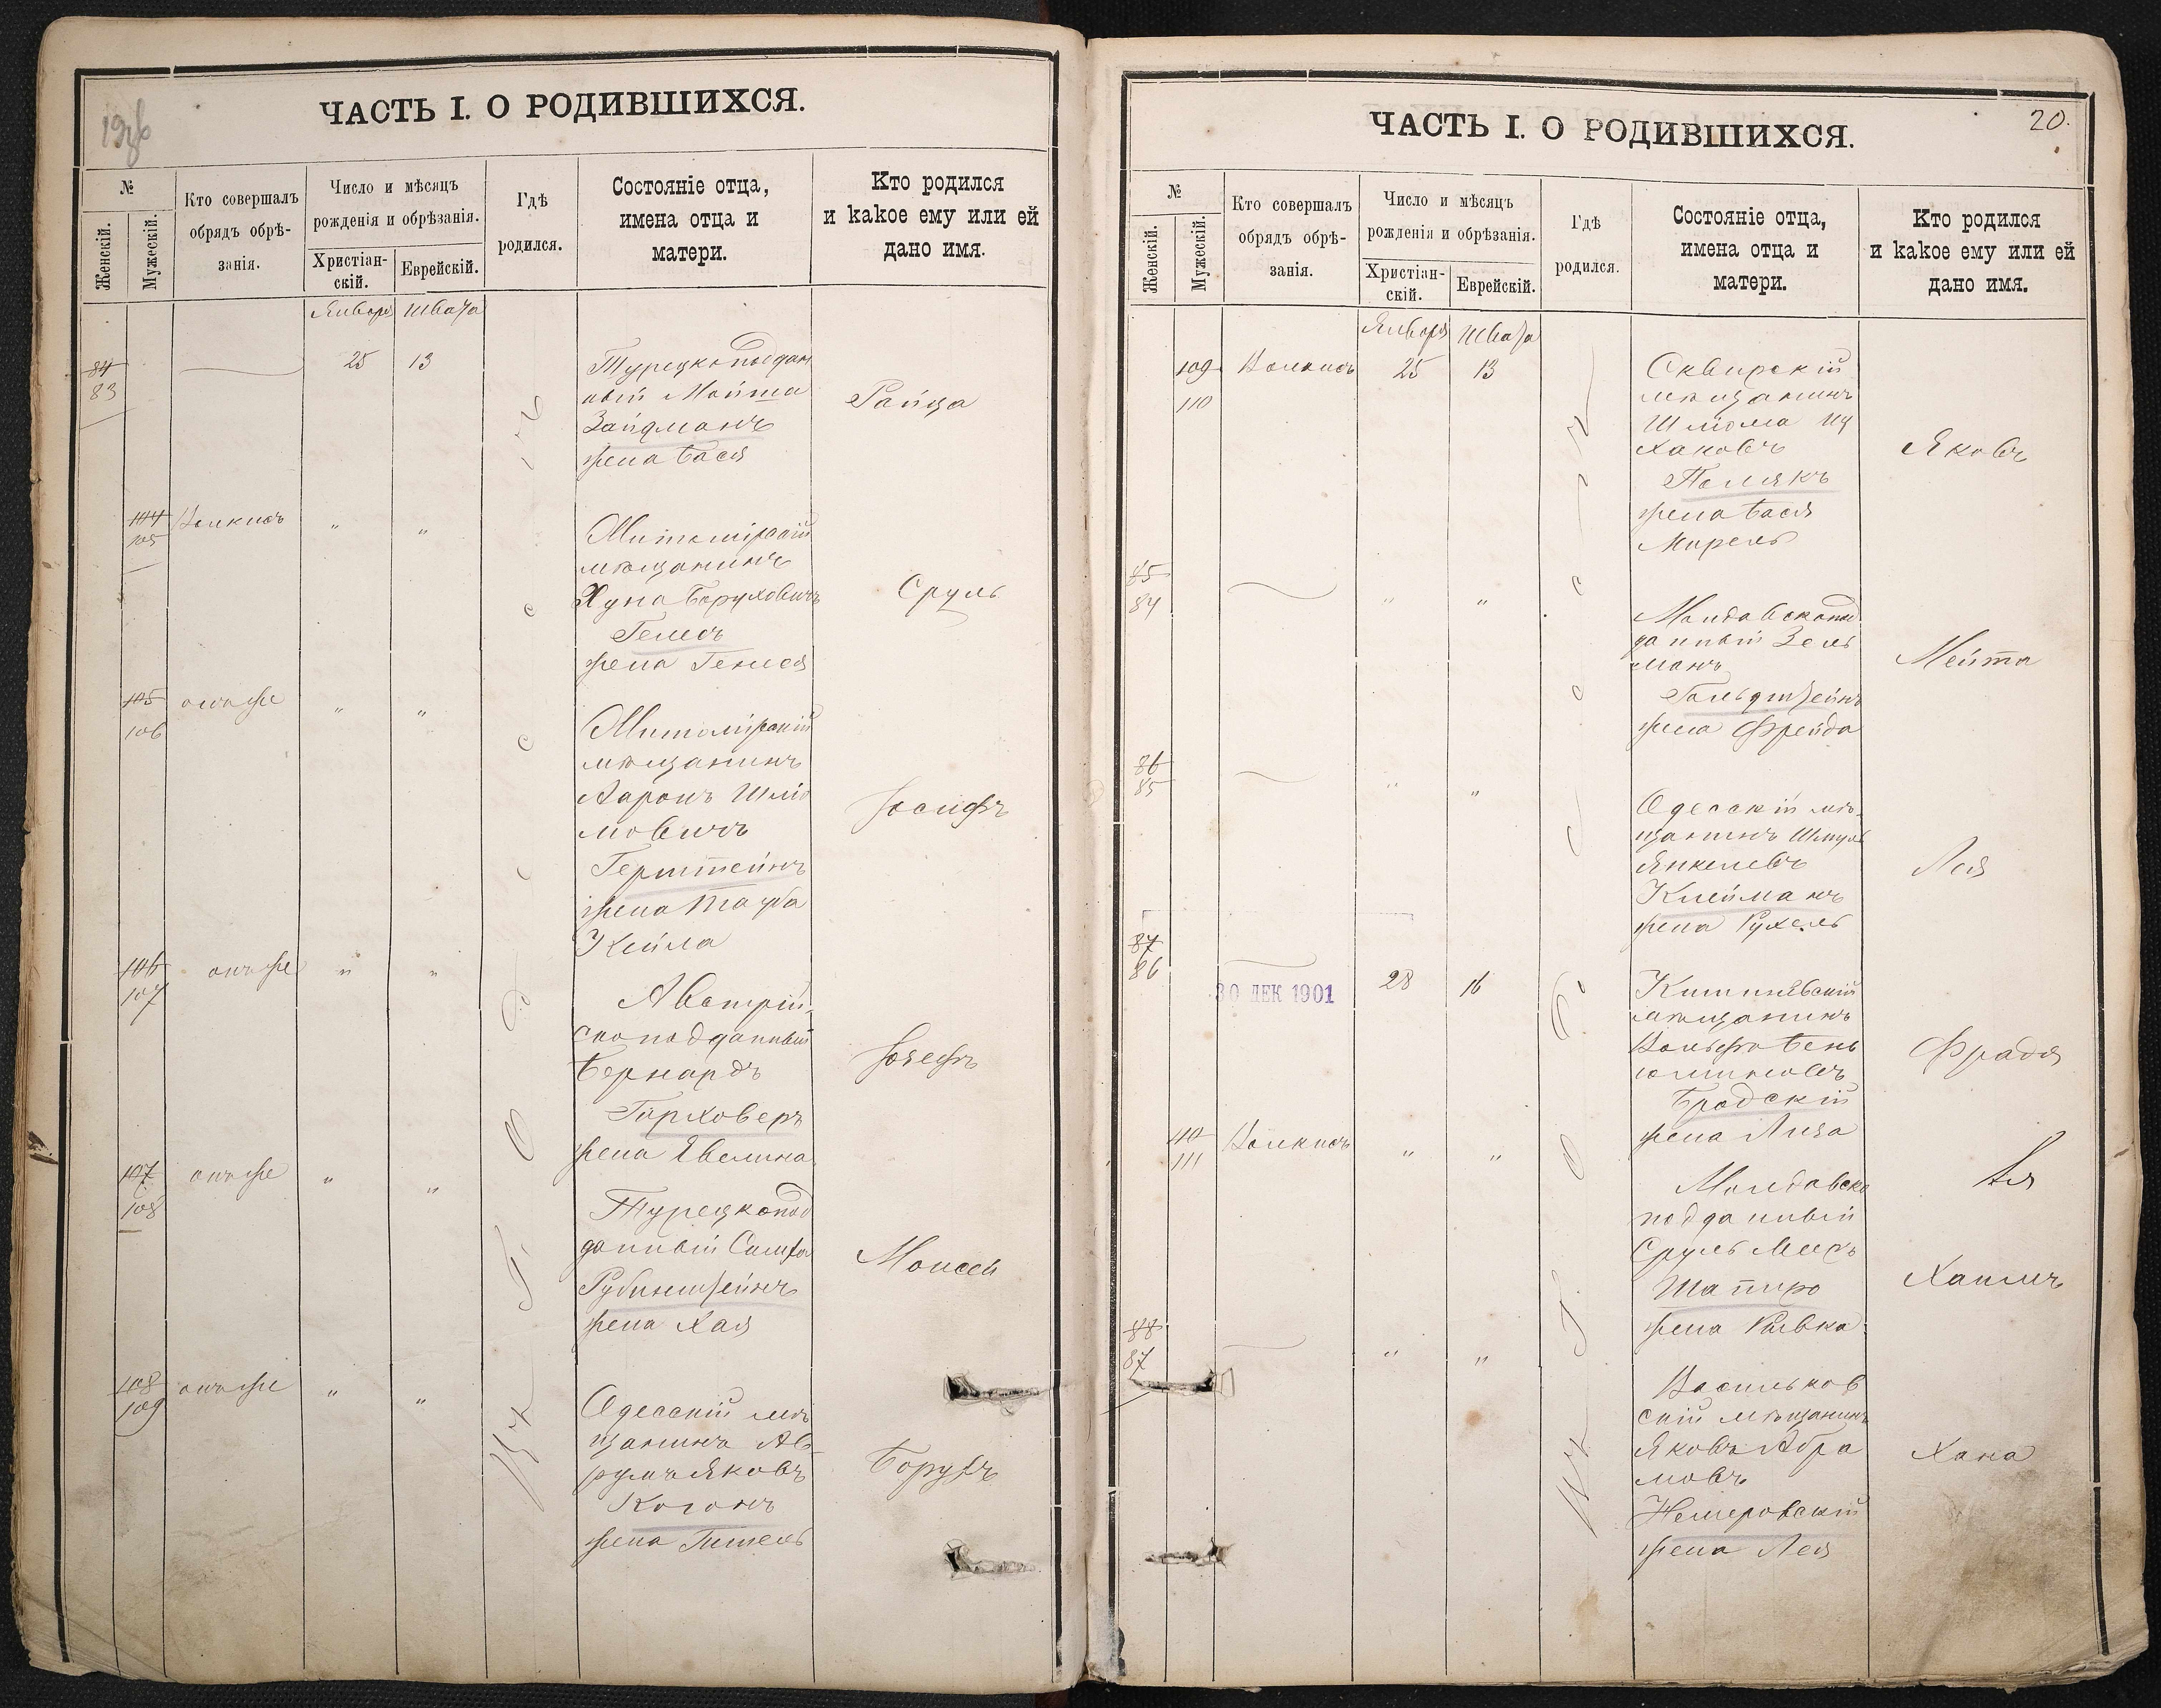 19об
ЧАСТЬ I. О РОДИВШИХСЯ.
№
Женскій.
Мужескій.
Кто совершалъ
обрядъ обрѣ-
занія.
Число и мѣсяцъ
рожденія и обрѣзанія.
Христіан-
скій.
Еврейскій.
Гдѣ
родился.
Состояніе отца,
имена отца и
матери.
Кто родился
и какое ему или ей
дано имя.
Января Швата
84
83
25 13
Турецкоподдан
ный
Зайдманъ
жена Бася
Райца
104
105
" "
мѣщанинъ
Хуна Боруховичъ
жена
Сруль
105
106
онъ же
" "
мѣщанинъ
Ааронъ Шліо
мовичъ
Герштейнъ
жена Тауба
Кейла
Іосифъ
106
107
онъ же
" "
Австрій-
скоподданный
Бернардъ
Гирховеръ
жена Эвелина
Іозефъ
107
108
онъ же
" "
Турецкопод
данный Симха
Рубинштейнъ
жена Хая
Моисей
108
109
онъ же
" "
Одесскій мѣ
щанинъ Ав
румъ Яковъ
Коганъ
жена Гитель
Борухъ
Въ г. Одессѣ
20.
ЧАСТЬ I. О РОДИВШИХСЯ.
№
Женскій.
Мужескій.
Кто совершалъ
обрядъ обрѣ-
занія.
Число и мѣсяцъ
рожденія и обрѣзанія.
Христіан-
скій.
Еврейскій.
Гдѣ
родился.
Состояніе отца,
имена отца и
матери.
Кто родился
и какое ему или ей
дано имя.
Января Швата
109
110
25 13
Сквирскій
мѣщанинъ
Шліома Иц
хаковъ
Полякъ
жена Бася
Мирель
Яковъ
85
84
" "
Молдавскопод
данный Зель
манъ
Гольдштейнъ
жена Фрейда
Мейта
86
85
" "
Одесскій мѣ-
щанинъ Шмуль
Янкелевъ
Клейманъ
жена Рухель
Лея
87
86
30 ДЕК 1901
28 16
Кишиневскій
мѣщанинъ
Вольфъ Бень
юминовъ
Бродскій
жена Лиза
Фрадя
110
111
" "
Молдавско
подданный
Сруль
Шапиро
жена Ривка
Хаимъ
88
87
" "
Васильков
скій мѣщанинъ
Яковъ Абра
мовъ
Немеровскій
жена Лея
Хана
Въ г. Одессѣ